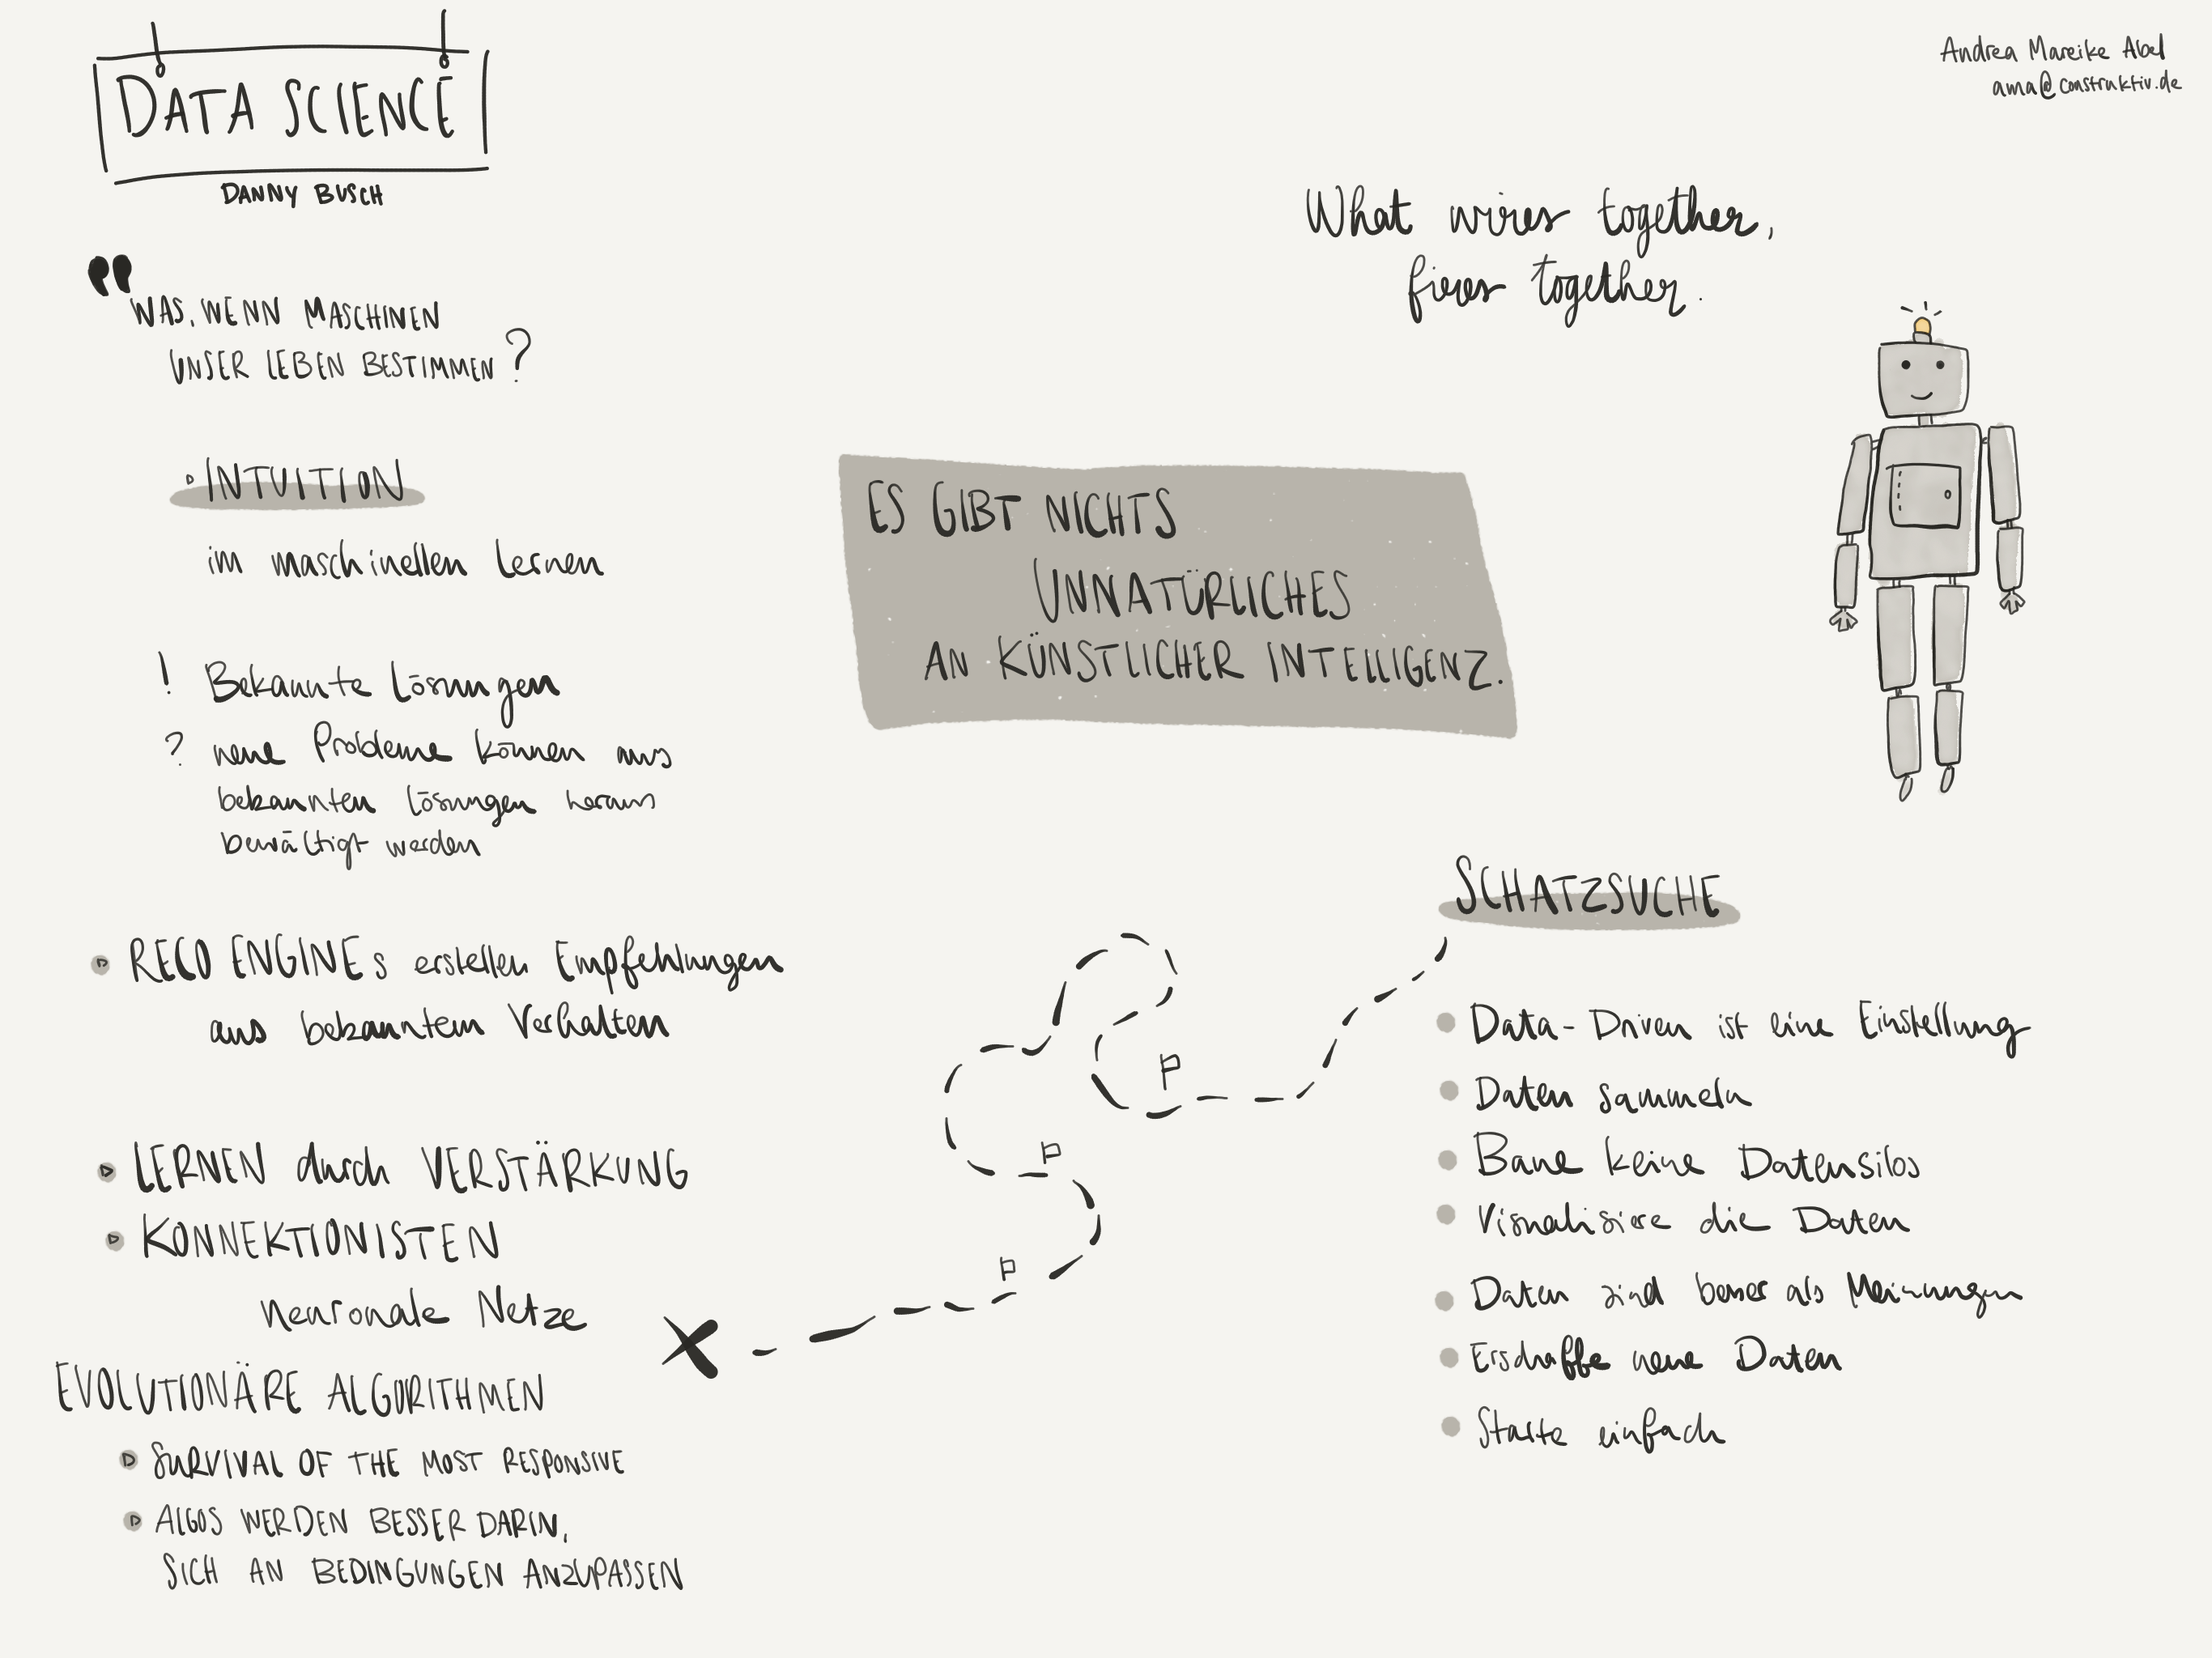 DATA SCIENCE
DANNY BUSCH
WAS, WENN MASCHINEN
UNSER LEBEN BESTIMMEN?
INTUITION
im maschinellen Lernen
! Bekannte Lösungen
? neue Probleme können aus
bekannten Lösungen heraus
bewältigt werden
RECO ENGINEs erstellen Empfehlungen
aus bekanntem Verhalten
LERNEN durch VERSTÄRKUNG
KONNEKTIONISTEN
neuronale Netze
EVOLUTIONÄRE ALGORITHMEN
SURVIVAL OF THE MOST RESPONSIVE
ALGOS WERDEN BESSER DARIN,
SICH AN BEDINGUNGEN ANZUPASSEN
ES GIBT NICHTS
UNNATÜRLICHES
AN KÜNSTLICHER INTELLIGENZ.
Andrea Mareike Abel
ama@construktiv.de
What wires together,
fires together.
SCHATZSUCHE
Data-Driven ist eine Einstellung
Daten sammeln
Baue keine Datensilos
Visualisiere die Daten
Daten sind besser als Meinungen
Erschaffe neue Daten
Starte einfach